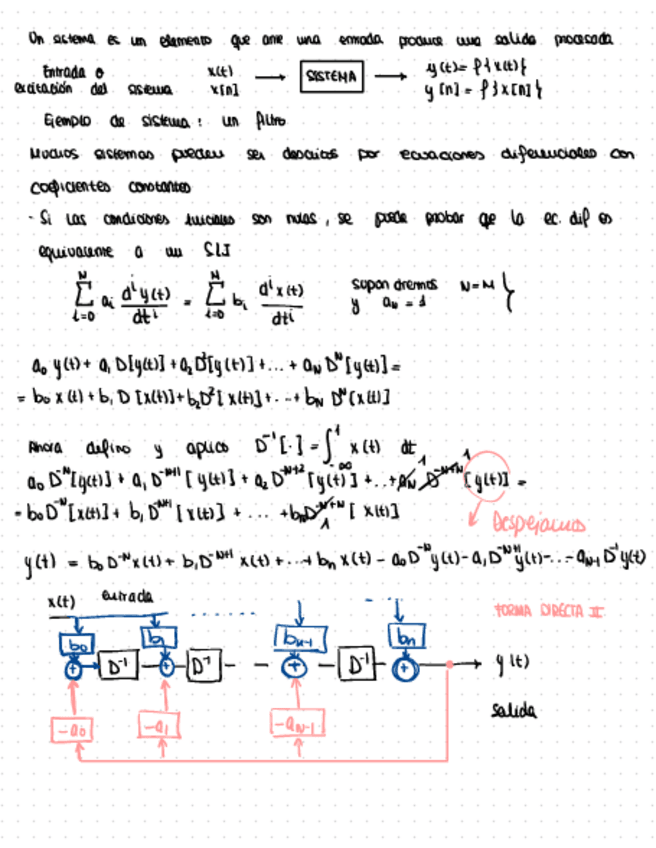 Un sistema es un elemento que ante una entrada produce una salida procesada
Entrada o x(t) → SISTEMA → y(t) = f{x(t)}
excitación del sistema x[n] y[n] = f{x[n]}
Ejemplo de sistema: un filtro
Muchos sistemas pueden ser descritos por ecuaciones diferenciales con
coeficientes constantes
- Si las condiciones iniciales son nulas, se puede probar qe la ec. dif es
equivalente a un SLI
∑_{i=0}^{N} a_i d^i y(t)/dt^i = ∑_{i=0}^{N} b_i d^i x(t)/dt^i supondremos N=M }
y a_N = 1
a₀ y(t) + a₁ D[y(t)] + a₂ D²[y(t)] + ... + a_N D^N [y(t)] =
= b₀ x(t) + b₁ D [x(t)] + b₂ D² [x(t)] + ... + b_N D^N [x(t)]
Ahora defino y aplico D⁻¹[·] = ∫_{-∞}^{t} x(t) dt
a₀ D^{-N}[y(t)] + a₁ D^{-N+1} [y(t)] + a₂ D^{-N+2} [y(t)] + ... + a_N D^{-N+N} [y(t)] =
1 1
= b₀ D^{-N} [x(t)] + b₁ D^{-N+1} [x(t)] + ... + b_n D^{-N+N} [x(t)]
1
Despejamos
y(t) = b₀ D^{-N} x(t) + b₁ D^{-N+1} x(t) + ... + b_n x(t) - a₀ D^{-N} y(t) - a₁ D^{-N+1} y(t) - ... - a_{N-1} D⁻¹ y(t)
x(t) entrada
FORMA DIRECTA II
b₀ b₁ b_{N-1} b_n
+ D⁻¹ + D⁻¹ + D⁻¹ + y(t)
salida
-a₀ -a₁ -a_{N-1}